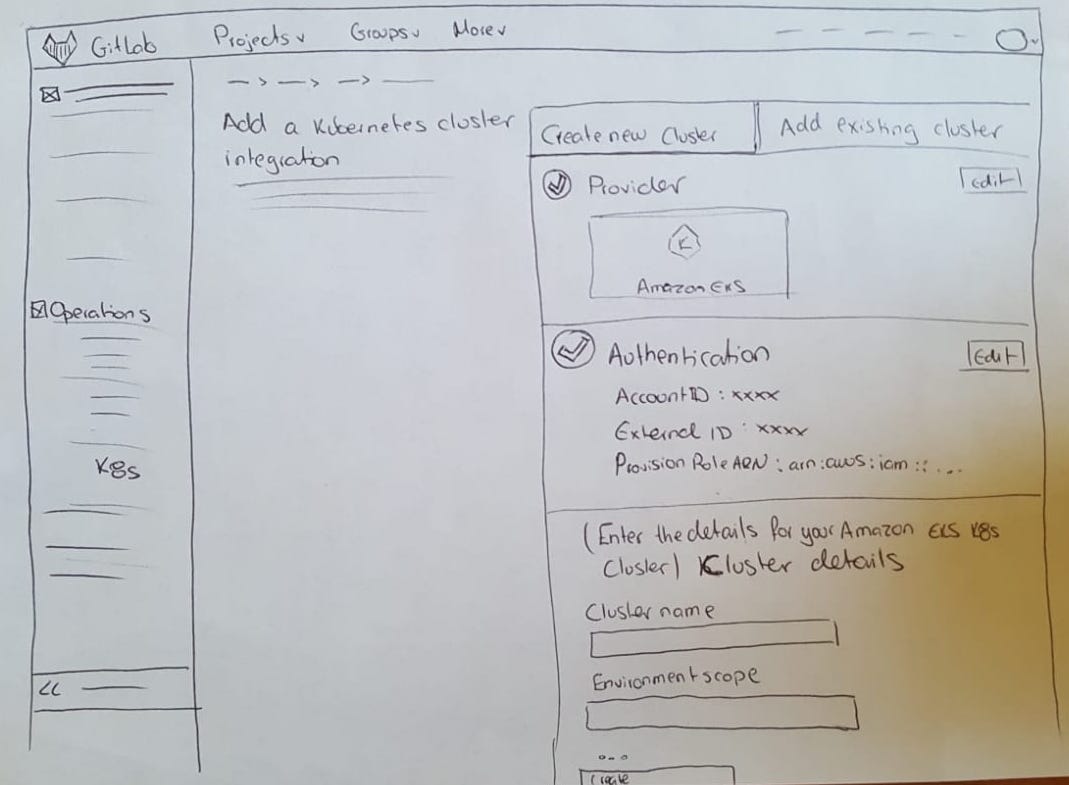 GitLab
Projects
Groups
More
Add a Kubernetes cluster
integration
Operations
K8s
<<
Create new Cluster
Add existing cluster
Provider
Edit
K
Amazon EKS
Authentication
Edit
Account ID : xxxx
External ID : xxxx
Provision Role ARN : arn:aws:iam::...
(Enter the details for your Amazon EKS K8s
Cluster) Cluster details
Cluster name
Environment scope
...
Create